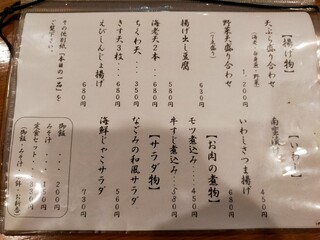 【揚げ物】
天ぷら盛り合わせ
(海老・白身魚・野菜)
1,200円
野菜天盛り合わせ
630円
揚げ出し豆腐
580円
海老天2本・・680円
ちくわ天・・・350円
きす天3枚・・・680円
えびしんじょ揚げ
680円
その他別紙「本日の一品」を
ご覧下さい。
【いわし】
南蛮漬
450円
いわしさつま揚げ
680円
【お肉の煮物】
モツ煮込み・・・450円
牛すじ煮込み・・580円
【サラダ物】
なごみの和風サラダ
560円
海鮮じゃこサラダ
730円
御飯・・・・200円
みそ汁・・・150円
定食セット・・350円
(御飯・みそ汁・鉢・お新香)